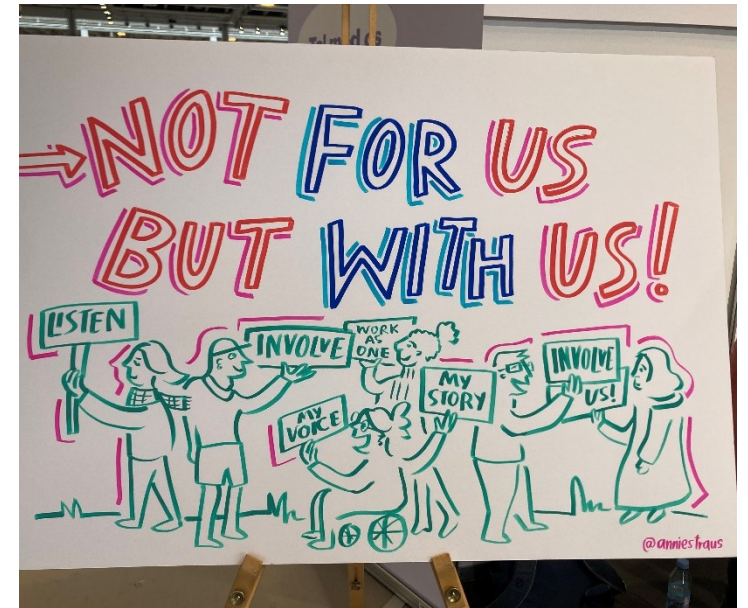 NOT FOR US
BUT WITH US!
LISTEN
INVOLVE
WORK
AS
ONE
MY
VOICE
MY
STORY
INVOLVE
US!
@anniestraus